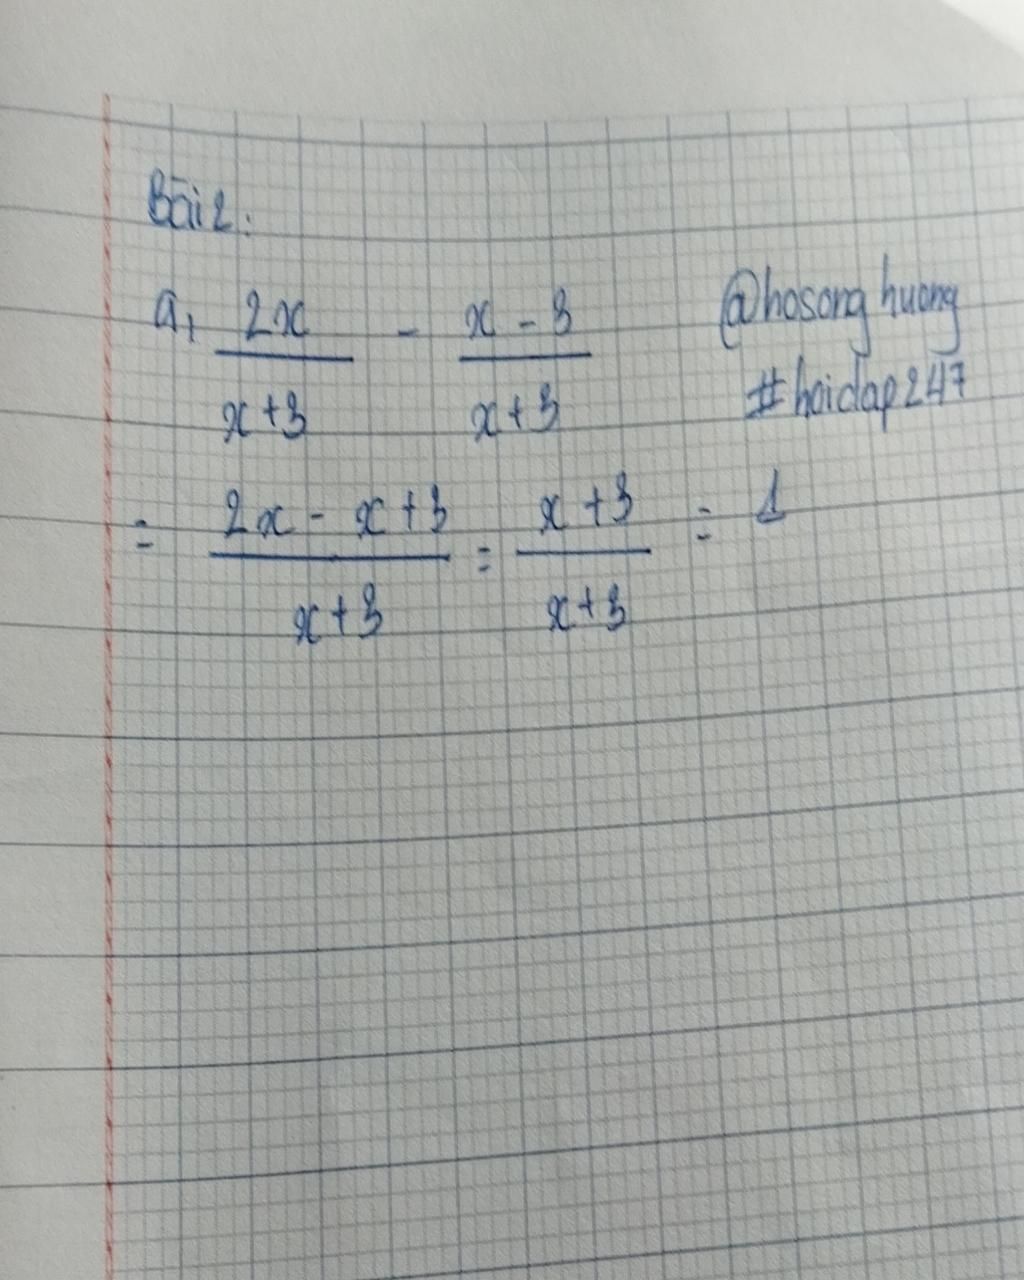 Bài 2:
a, 2x/x+3 - x-3/x+3
@hosonghuong
#hoidap247
= 2x-x+3/x+3 = x+3/x+3 = 1